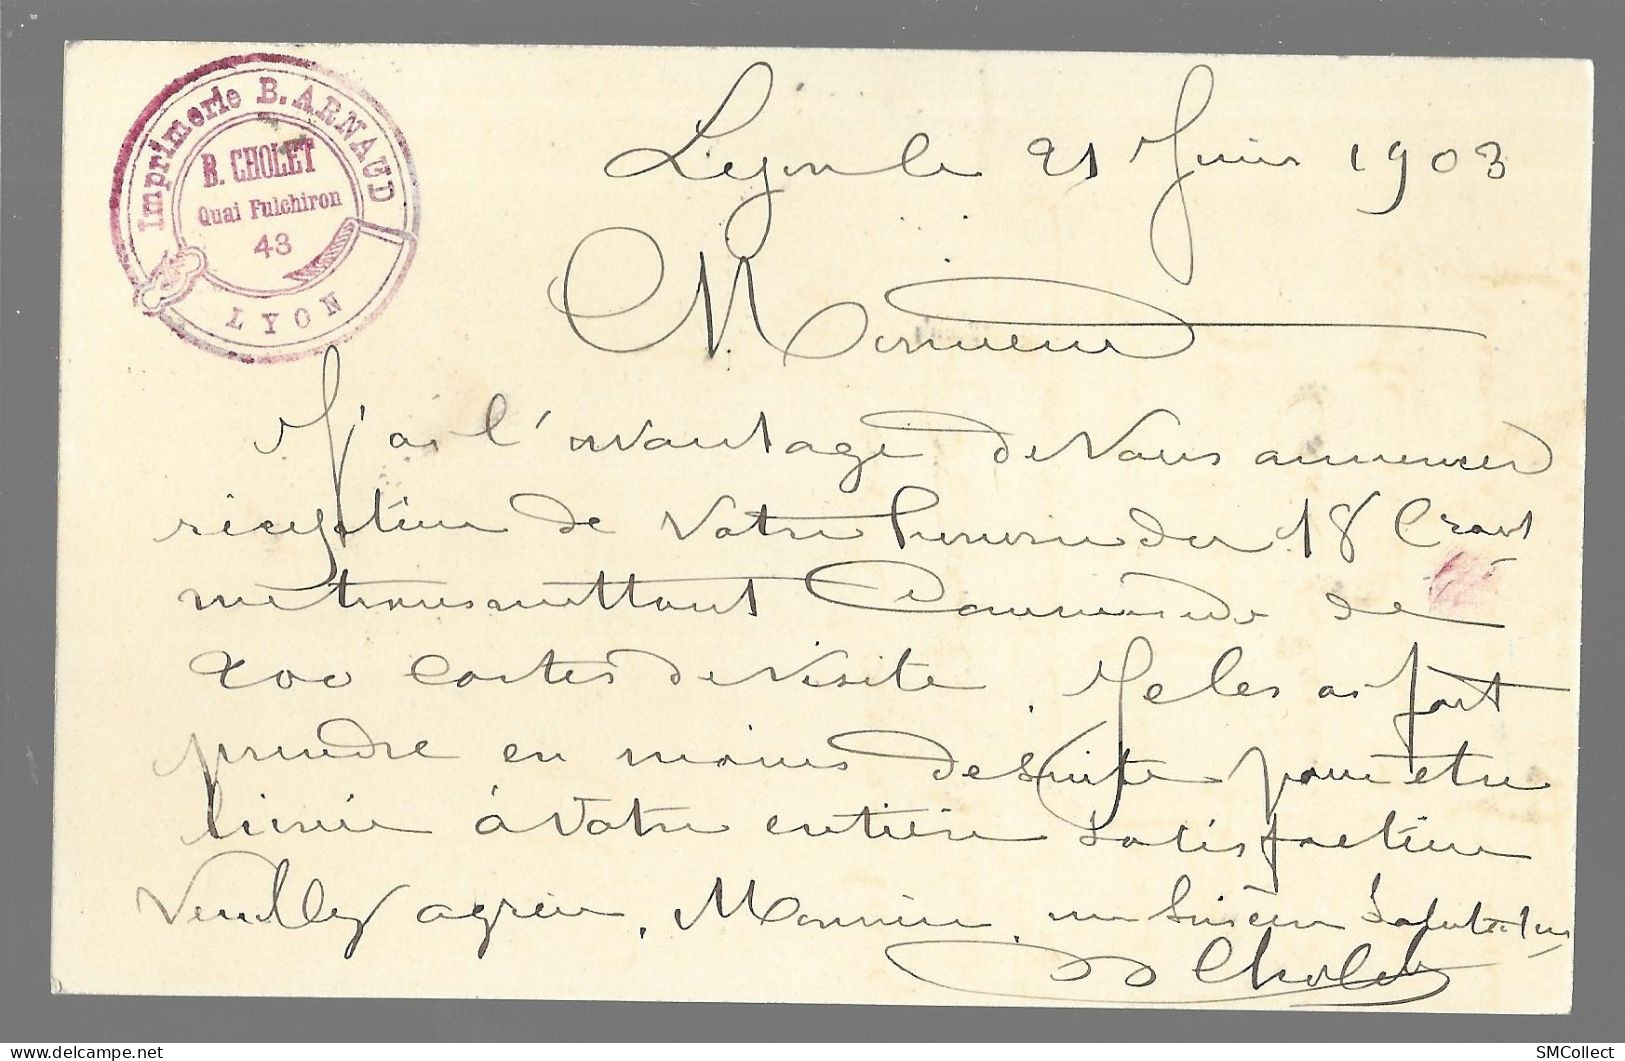 Imprimerie B. ARNAUD
B. CHOLET
Quai Fulchiron
43
LYON
Lyon le 21 Juin 1903
Monsieur
J'ai l'avantage de Vous annoncer
réception de Votre honorée du 18 Crant
me transmettant Commande de
200 Cartes de Visite. Je les ai fait
prendre en mains de Suite pour être
livrée à Votre entière Satisfaction
Veuillez agréer, Monsieur, mes Sincères Salutations
B Cholet
SMCollect